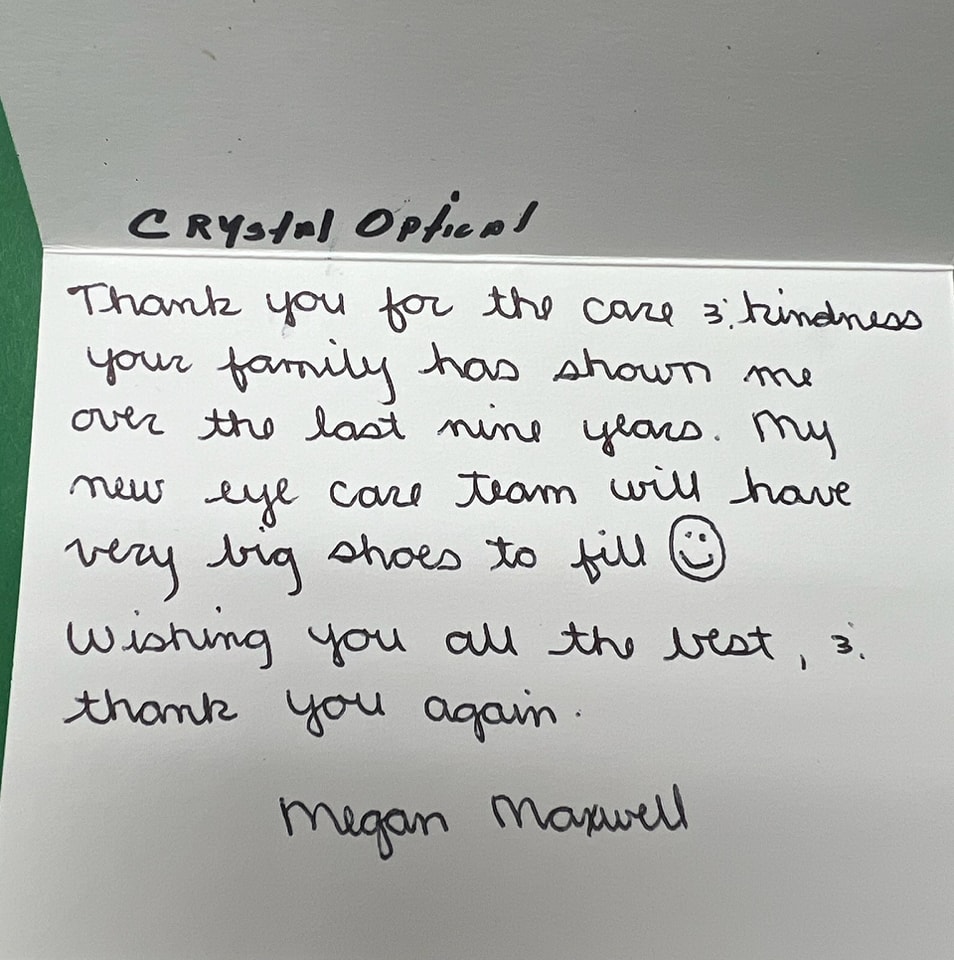 Crystal Optical
Thank you for the care & kindness
your family has shown me
over the last nine years. My
new eye care team will have
very big shoes to fill ☺
Wishing you all the best, &
thank you again.
Megan Maxwell